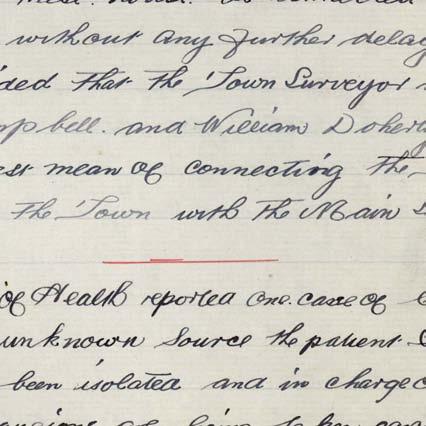 without any further delay
ded that the Town Surveyor
pbell. and William Doherty
est mean of connecting the
the Town with the Main S
of Health reported one case of
unknown source the patient
been isolated and in charge